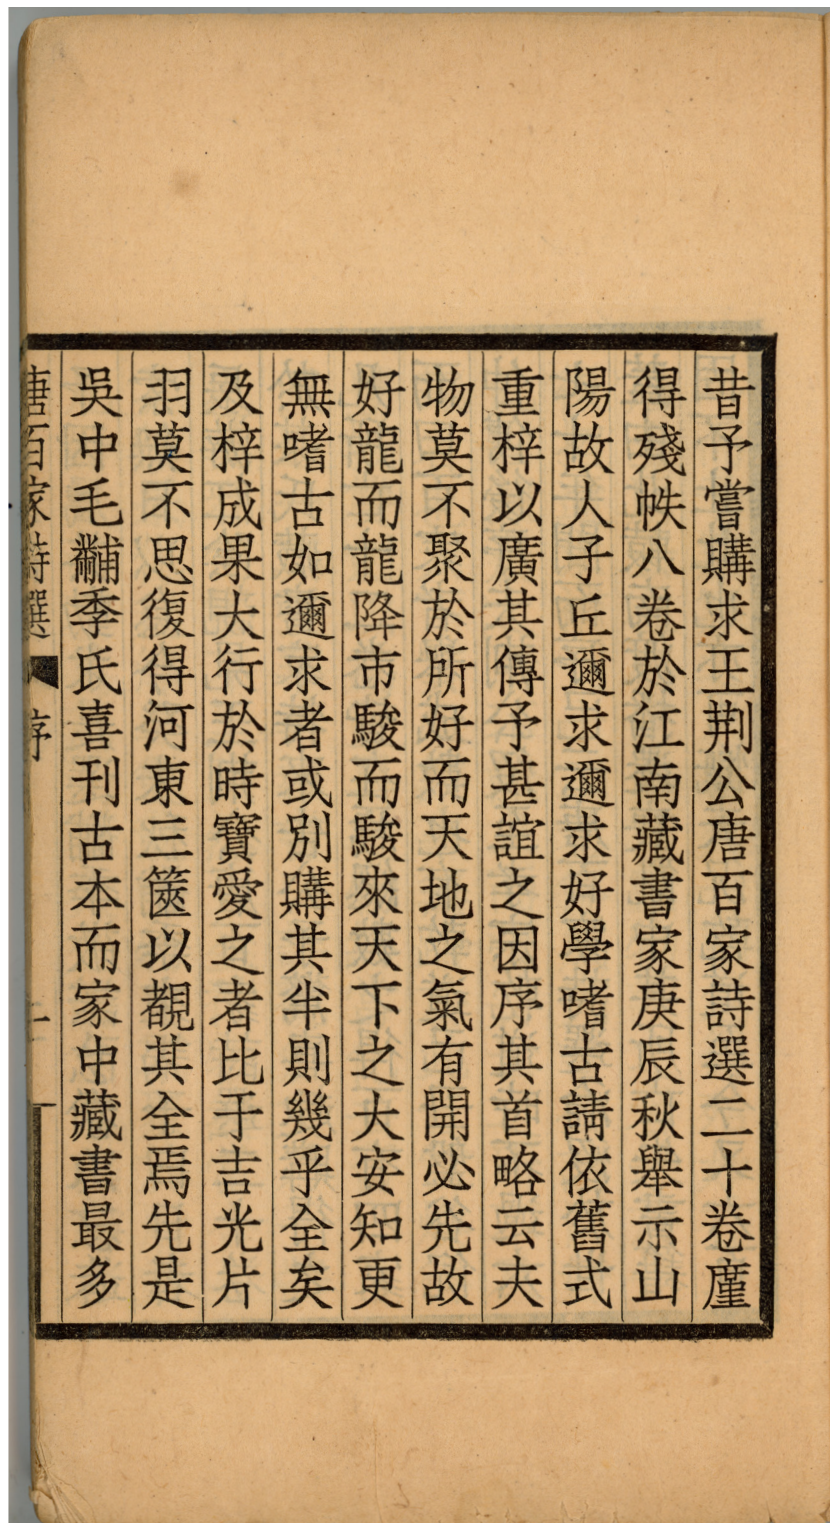 昔予嘗購求王荆公唐百家詩選二十卷廑
得殘帙八卷於江南藏書家庚辰秋舉示山
陽故人子丘邇求邇求好學嗜古請依舊式
重梓以廣其傳予甚誼之因序其首略云夫
物莫不聚於所好而天地之氣有開必先故
好龍而龍降市駿而駿來天下之大安知更
無嗜古如邇求者或別購其半則幾乎全矣
及梓成果大行於時寶愛之者比于吉光片
羽莫不思復得河東三篋以覩其全焉先是
吳中毛黼季氏喜刊古本而家中藏書最多
唐百家詩選 序 一